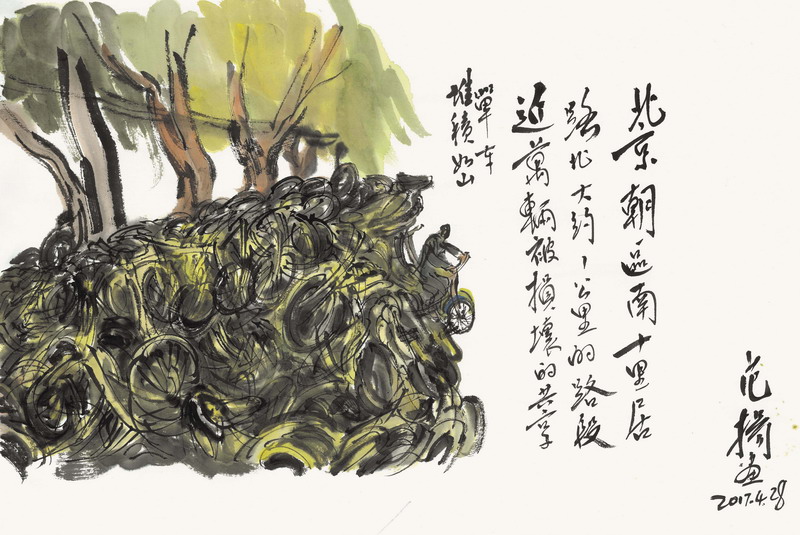 北京朝區南十里居
路北大约1公里的路段
近萬輛被損壞的共享
單车
堆積如山
范揚画
2017.4.28